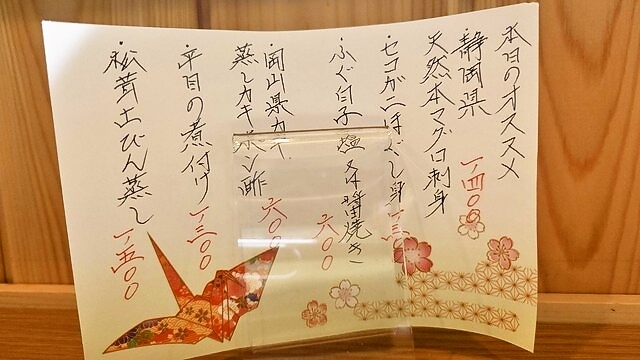 本日のオススメ
静岡県
天然本マグロ刺身
一四〇〇
・セコガニほぐし身
・ふぐ白子塩又は醤油焼き
六〇〇
・岡山県カキ
蒸しカキポン酢
六〇〇
・平目の煮付け
一三〇〇
・松茸土びん蒸し
一五〇〇